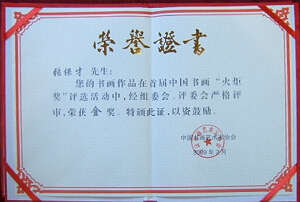 荣誉證書
张保才 先生：
您的书画作品在首届中国书画“火炬
奖”评选活动中，经组委会、评委会严格评
审，荣获金奖。特颁此证，以资鼓励。